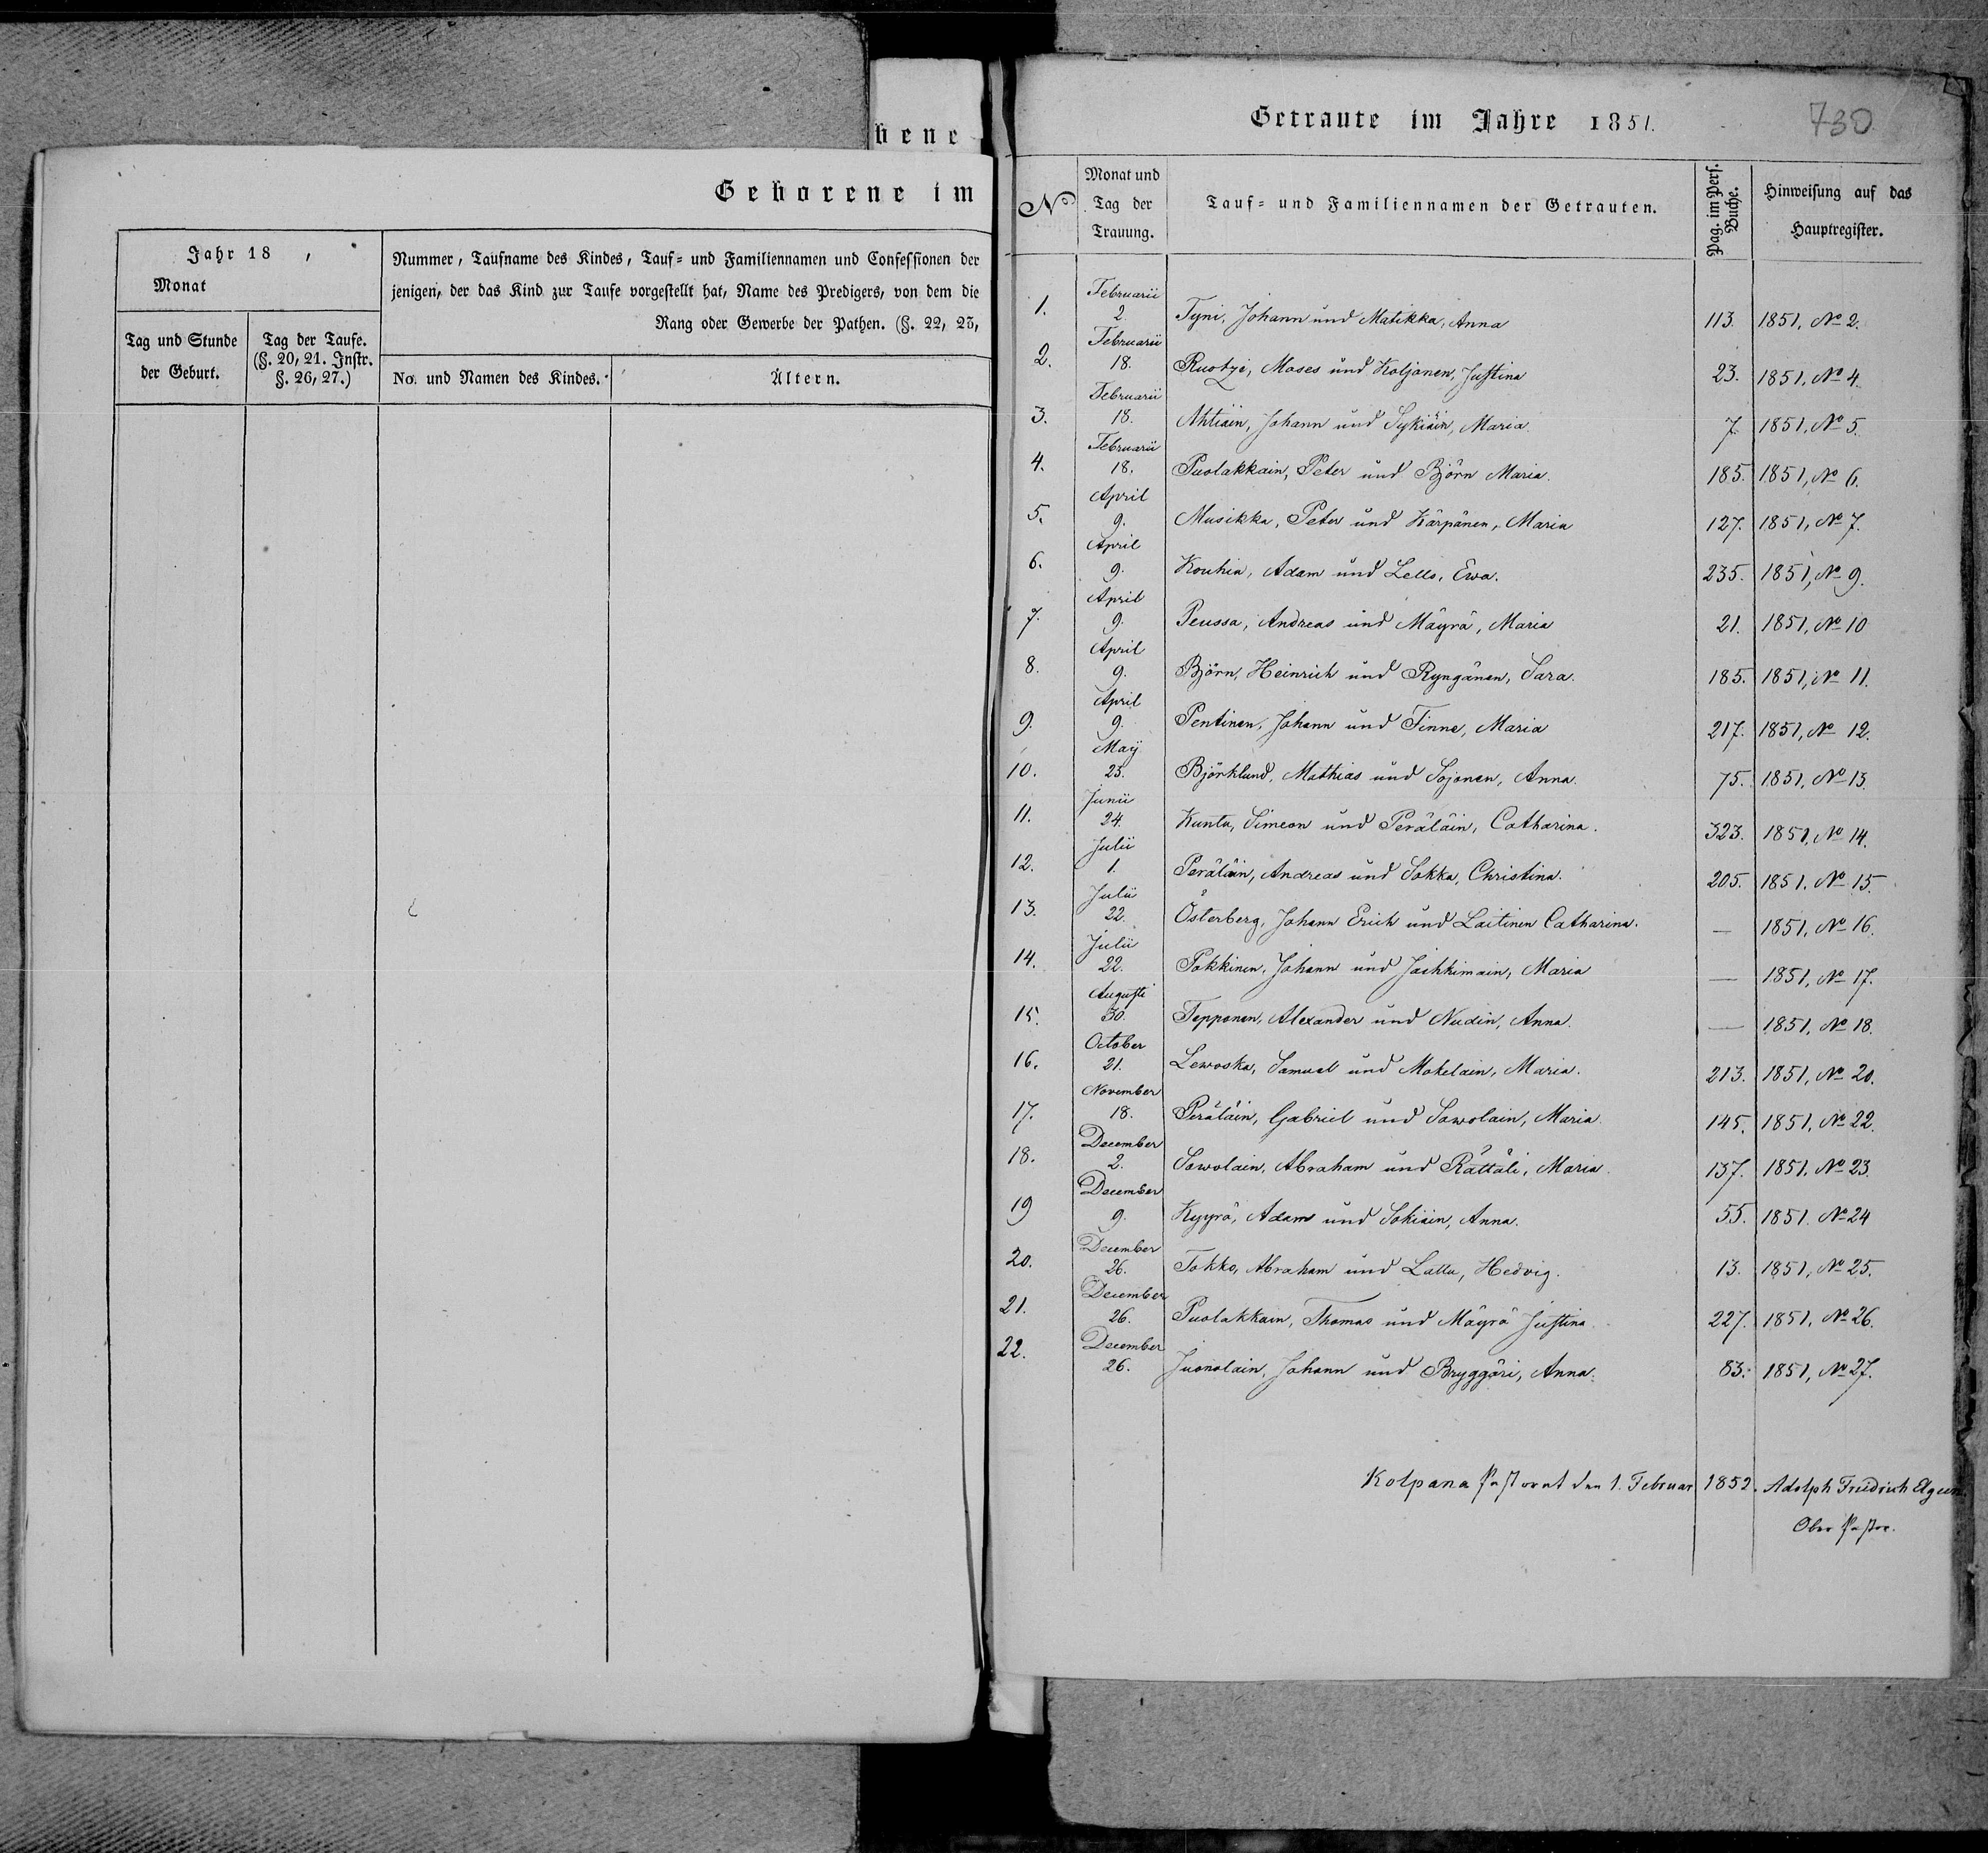 bene
Geborene im
Jahr 18 ,
Monat
Tag und Stunde
der Geburt.
Tag der Taufe.
(§. 20, 21. Instr.
§. 26, 27.)
Nummer, Taufname des Kindes, Tauf- und Familiennamen und Confessionen der
jenigen, der das Kind zur Taufe vorgestellt hat, Name des Predigers, von dem die
Rang oder Gewerbe der Pathen. (§. 22, 23,
No. und Namen des Kindes.
Ältern.
Getraute im Jahre 1851.
730
No
Monat und
Tag der
Trauung.
Tauf- und Familiennamen der Getrauten.
Pag. im Pers.
Buche.
Hinweisung auf das
Hauptregister.
1. Februarii 2. Tyni, Johann und Matikka, Anna 113. 1851, No 2.
2. Februarii 18. Moses und Koljonen, Justina 23. 1851, No 4.
3. Februarii 18. Ahtiäin, Johann und Sykiäin, Maria. 7. 1851, No 5.
4. Februarii 18. Puolakkain, Peter und Björn Maria. 185. 1851, No 6.
5. April 9. Musikka, Peter und Kärpänen, Maria 127. 1851, No 7.
6. April 9. Kouhia, Adam und Ewa. 235. 1851, No 9.
7. April 9. Peussa, Andreas und Mäyrä, Maria 21. 1851, No 10
8. April 9. Björn, Heinrich und Ryngänen, Sara. 185. 1851, No 11.
9. April 9. Pentinen, Johann und Finne, Maria 217. 1851, No 12.
10. May 25. Björklund, Mathias und Sojonen, Anna. 75. 1851, No 13.
11. Junii 24. Kuntu, Simeon und Peräläin, Catharina. 323. 1851, No 14.
12. Julii 1. Peräläin, Andreas und Sokka, Christina. 205. 1851. No 15.
13. Julii 22. Österberg, Johann Erich und Laitinen Catharina. — 1851, No 16.
14. Julii 22. Pokkinen, Johann und Maria — 1851, No 17.
15. Augusti 30. Tepponen, Alexander und Nudin, Anna. — 1851, No 18.
16. October 21. Lewoska, Samuel und Mokelain, Maria. 213. 1851, No 20.
17. November 18. Peräläin, Gabriel und Sawolain, Maria. 145. 1851, No 22.
18. December 2. Sawolain, Abraham und Rättäli, Maria. 137. 1851, No 23.
19 December 9. Kyyrä, Adam und Sokiäin, Anna. 55. 1851. No 24
20. December 26. Tokko, Abraham und Lallu, Hedvig. 13. 1851, No 25.
21. December 26. Puolakkain, Thomas und Mäyrä Justina 227. 1851, No 26.
22. December 26. Juonolain, Johann und Bryggäri, Anna. 83. 1851, No 27.
Kolpana Pastorat den 1. Februar 1852. Adolph Friedrich
Ober Pastor.